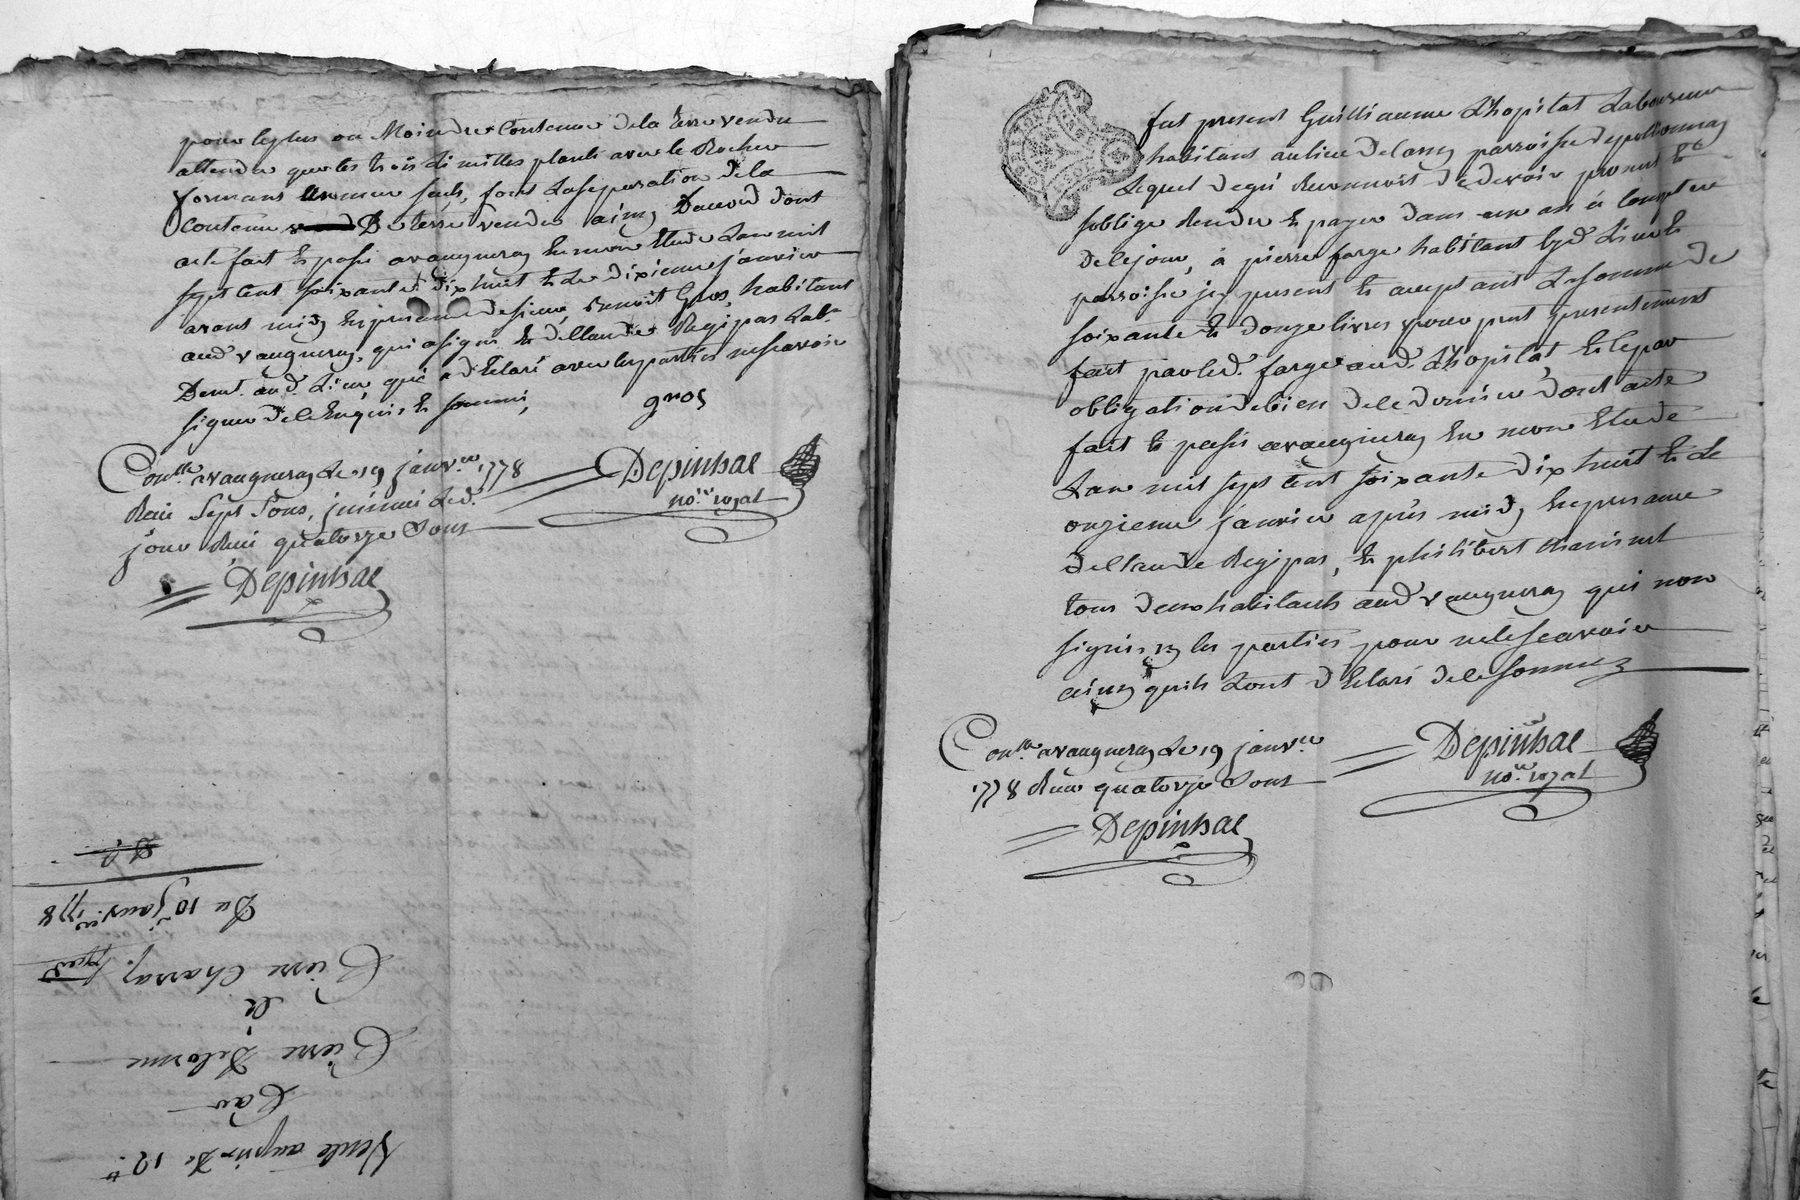 pour le plus ou Moindre Contenue de la terre vendue
attendu que les trois Limittes plantés avec le Rocher
formans anneau seuls, font La separation de la
Contenue de terre vendue ainsy Daccord dont
acte fait et passé a vaugneray en mon Etude Lan mil
sept cent soixante dixhuit et Le dixieme janvier
avant midy en presence de sieur Benoit Gros, habitant
aud vaugneray, qui a signé et de Claude Regipas Lab.r
Demt. aud. Lieu, qui a declaré avec les parties ne scavoir
signer de ce Enquis et sommé,
gros
Con.lle a vaugneray Le 19 janv.er 1778
Reçu Sept Sous, jnsinué Led.
jour Reçu quatorze Sous
Depinhac
no.re royal
Depinhac
Vente au prix De 12.tt
Par
Pierre Delorme
à
Pierre Charraz.
Du 10 janv.er 1778
fut present Guilliaume Lhopital Laboureur
habitant au lieu De Larny parroisse de pollionnay
Lequel de gré Reconnoit Et devoir promet Et
soblige Rendre Et payer Dans un an à Compter
De ce jour, à pierre farge habitant es d. Lieu Et
parroisse jcy present Et acceptant La somme De
soixante Et Douze livres pour pret presentement
fait par led. farge aud. Lhopital, Et le par
obligation de bien De ce Dernier Dont acte
fait Et passé a vaugneray En mon Etude
Lan mil sept cent soixante Dix huit Et Le
onzieme janvier apres midy En presence
de Claude Regipas, Et philibert
tous deux habitants aud vaugneray qui non
signé, ny les parties pour ne le scavoir
ainsy quils Lont Declaré de ce sommez
Con.lle a vaugneray Le 19 janv.er
1778 Reçu quatorze Sous
Depinhac
no.re royal
Depinhac